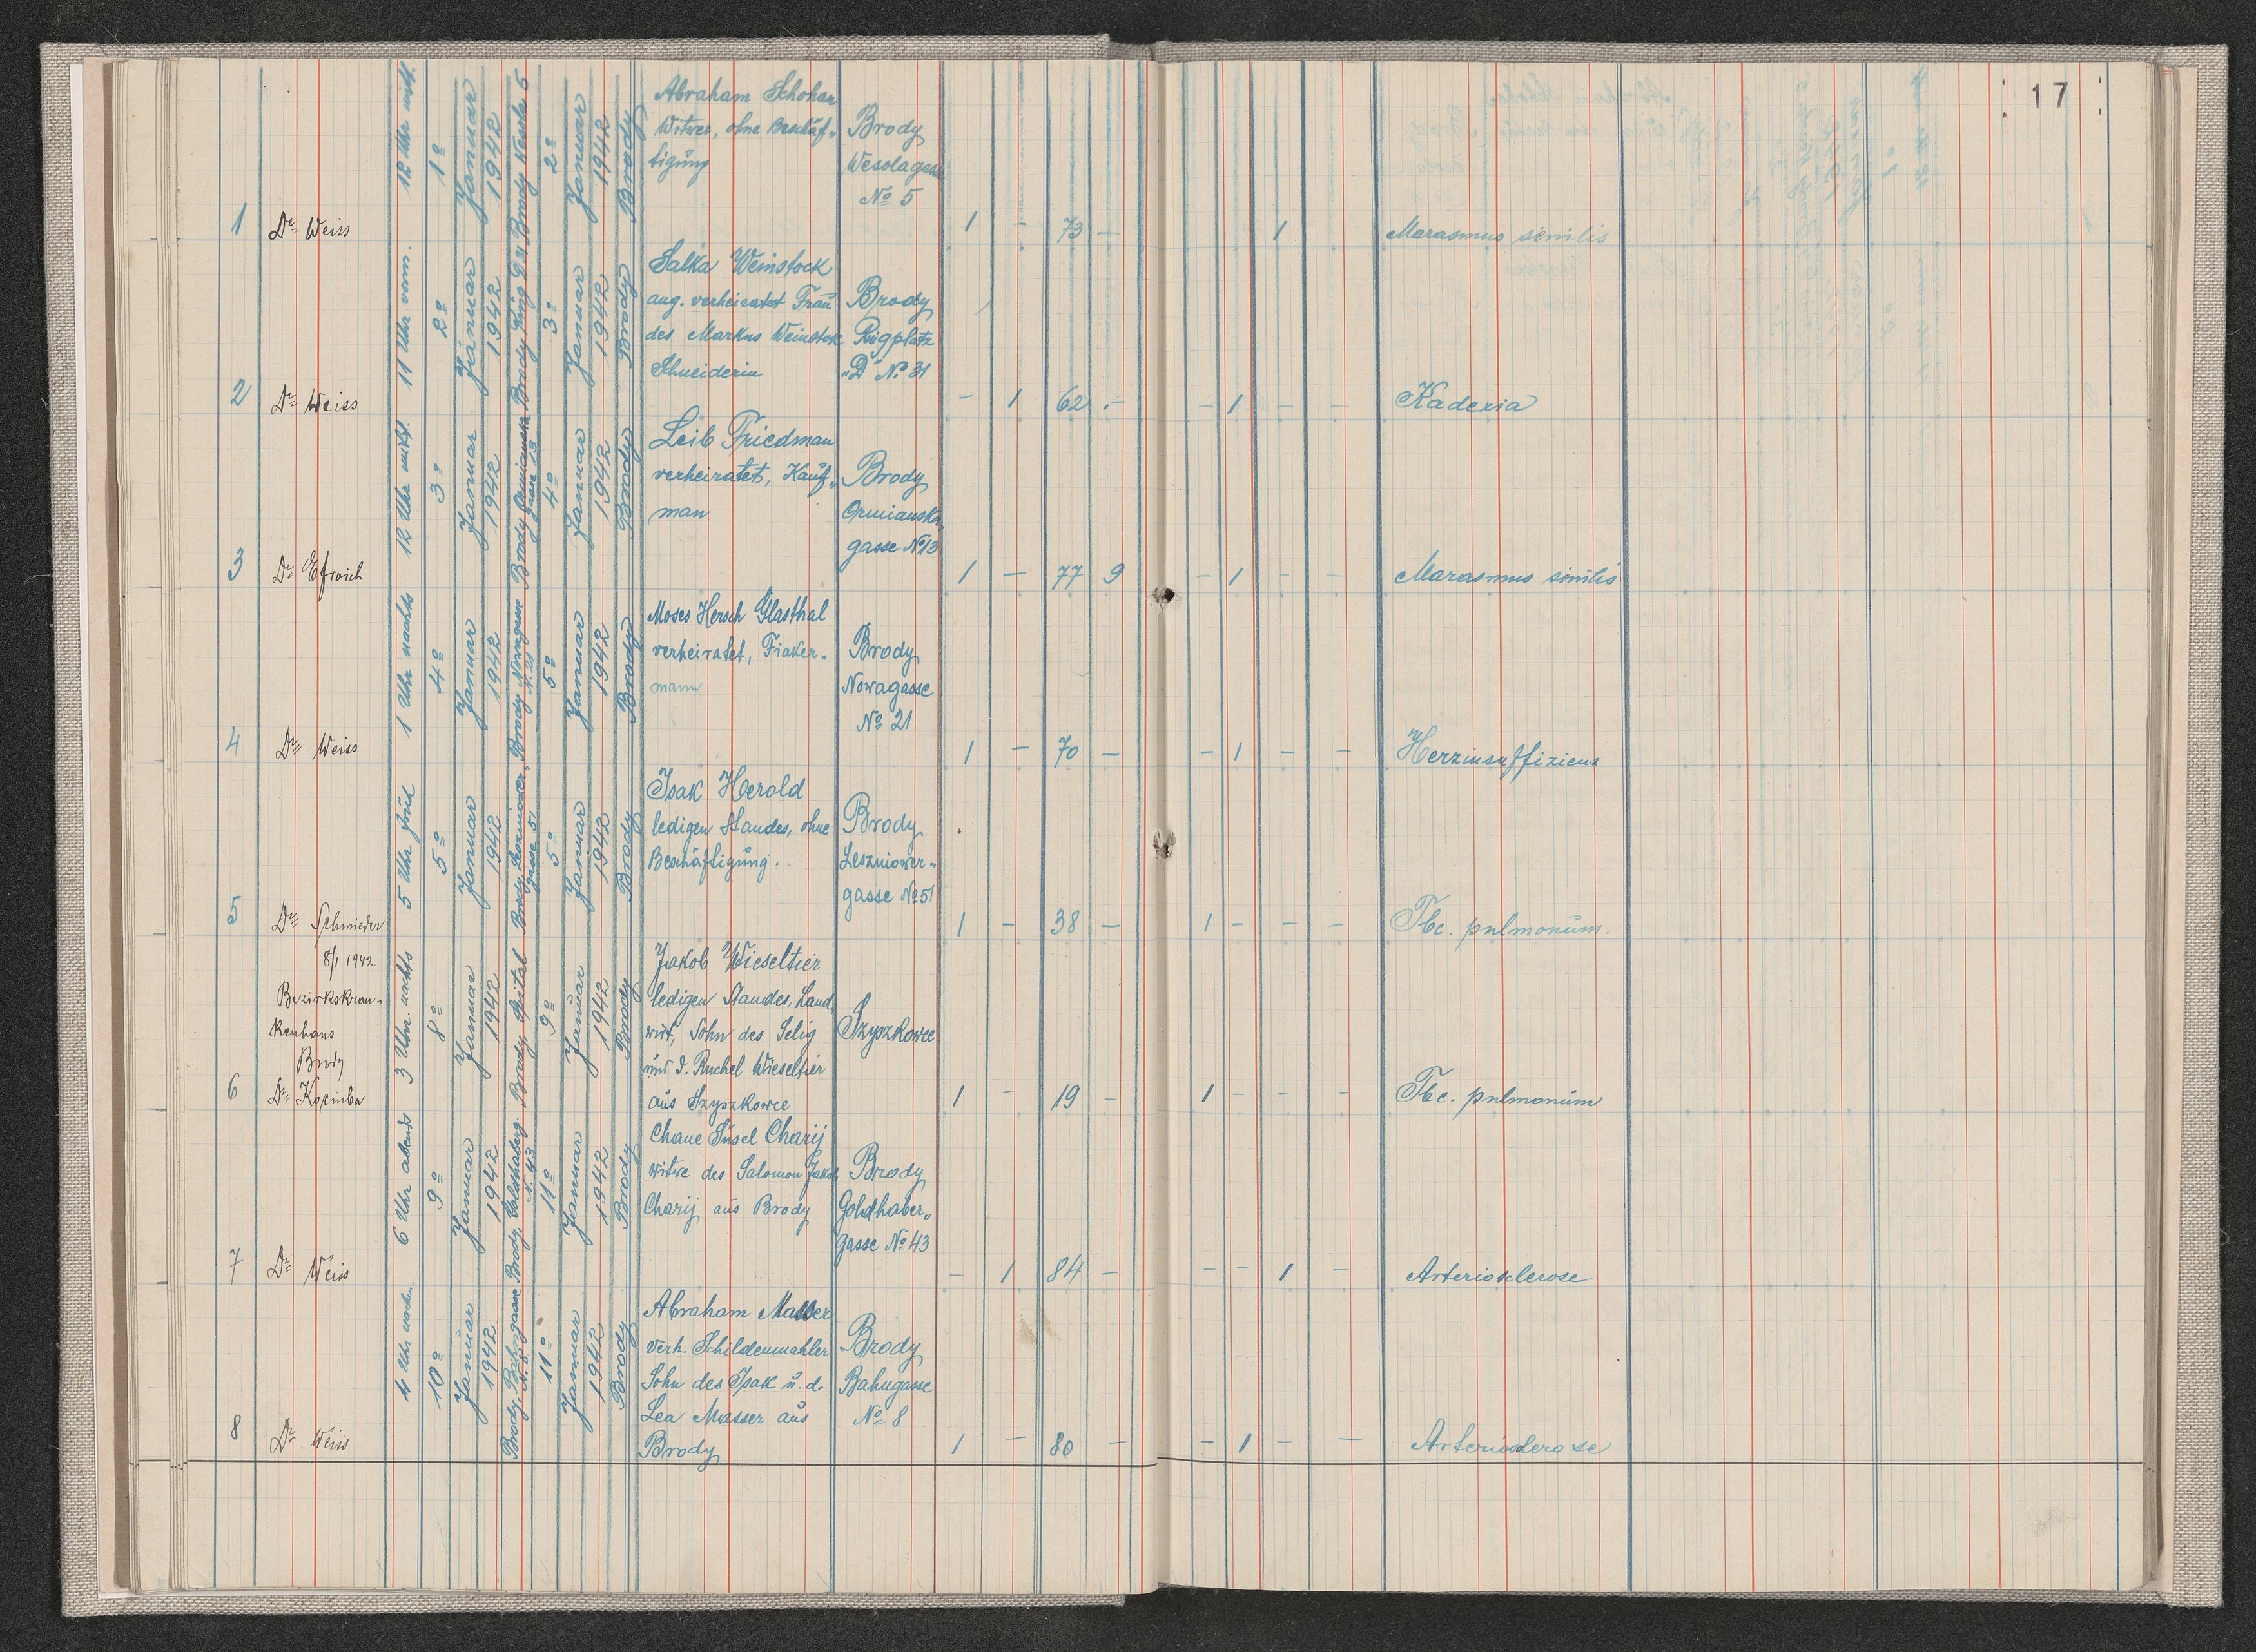 17
1
Dr Weiss
12 Uhr mitt.
1º
Januar
1942
Brody Wesola 5
2º
Januar
1942
Brody
Abraham Schohan
Witwer, ohne Beschäf-
tigung
Brody
Wesolagasse
Nº 5
1 - 73 -
1
Marasmus sinilis
2
Dr Weiss
11 Uhr vorm.
2º
Januar
1942
Brody Ring 9 31
3º
Januar
1942
Brody
Salka Weinstock
aug. verheiratet Frau
des Markus Weinstok
Schneiderin
Brody
Rigplatz
"D" Nº 31
- 1 62 -
- 1 - -
3
Dr Efroich
12 Uhr mitt.
3º
Januar
1942
Brody Ormianska
gasse 13
4º
Januar
1942
Brody
Leib Friedman
verheiratet, Kauf-
man
Brody
Ormianska
gasse Nº 13
1 - 77 9
- 1 - -
Marasmus sinilis
4
Dr Weiss
1 Uhr nachts
4º
Januar
1942
Brody Nowagasse
N. 21
5º
Januar
1942
Brody
Moses Hersch Glasthal
verheiratet, Fiaker-
mann
Brody
Nowagasse
Nº 21
1 - 70 -
- 1 - -
Herzinsuffiziens
5
Dr Schmieder
5 Uhr früh
5º
Januar
1942
Brody, Leszniower-
gasse 51
5º
Januar
1942
Brody
Isak Herold
ledigen Standes, ohne
Beschäftigung.
Brody
Leszniower-
gasse Nº 51
1 - 38 -
1 - - -
Tbc. pulmonum.
6
8/1 1942
Bezirkskran-
kenhaus
Brody
Dr
3 Uhr. nachts
8º
Januar
1942
Brody Spital
9º
Januar
1942
Brody
Jakob Wieseltier
ledigen Standes, Land-
wirt, Sohn des Selig
und d. Ruchel Wieseltier
aus Szyszkowce
Szyszkowce
1 - 19 -
1 - - -
Tbc. pulmonum
7
Dr Weiss
6 Uhr abends
9º
Januar
1942
Brody, Goldhaberg.
N. 43
11º
Januar
1942
Brody
Chane Süsel Charij
witwe des Salomon Jakob
Charij aus Brody
Brody
Goldhaber-
gasse Nº 43
- 1 84 -
- - 1 -
Arteriosclerose
8
Dr Weiss
4 Uhr nachm.
10º
Januar
1942
Brody, Bahngasse
N. 8
11º
Januar
1942
Brody
Abraham Masser
verh. Schildenmahler
Sohn des Isak u. d.
Lea Masser aus
Brody
Brody
Bahngasse
Nº 8
1 - 80 -
- 1 - -
Arteriosclerose